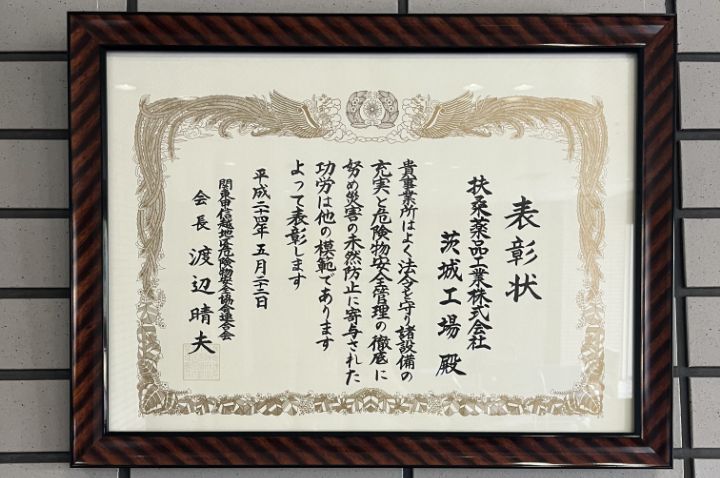 表彰状
扶桑薬品工業株式会社
茨城工場 殿
貴事業所はよく法令を守り諸設備の
充実と危険物安全管理の徹底に
努め災害の未然防止に寄与された
功労は他の模範であります
よって表彰します
平成二十四年五月二十二日
関東甲信越地区危険物安全協会連合会
会長 渡辺晴夫